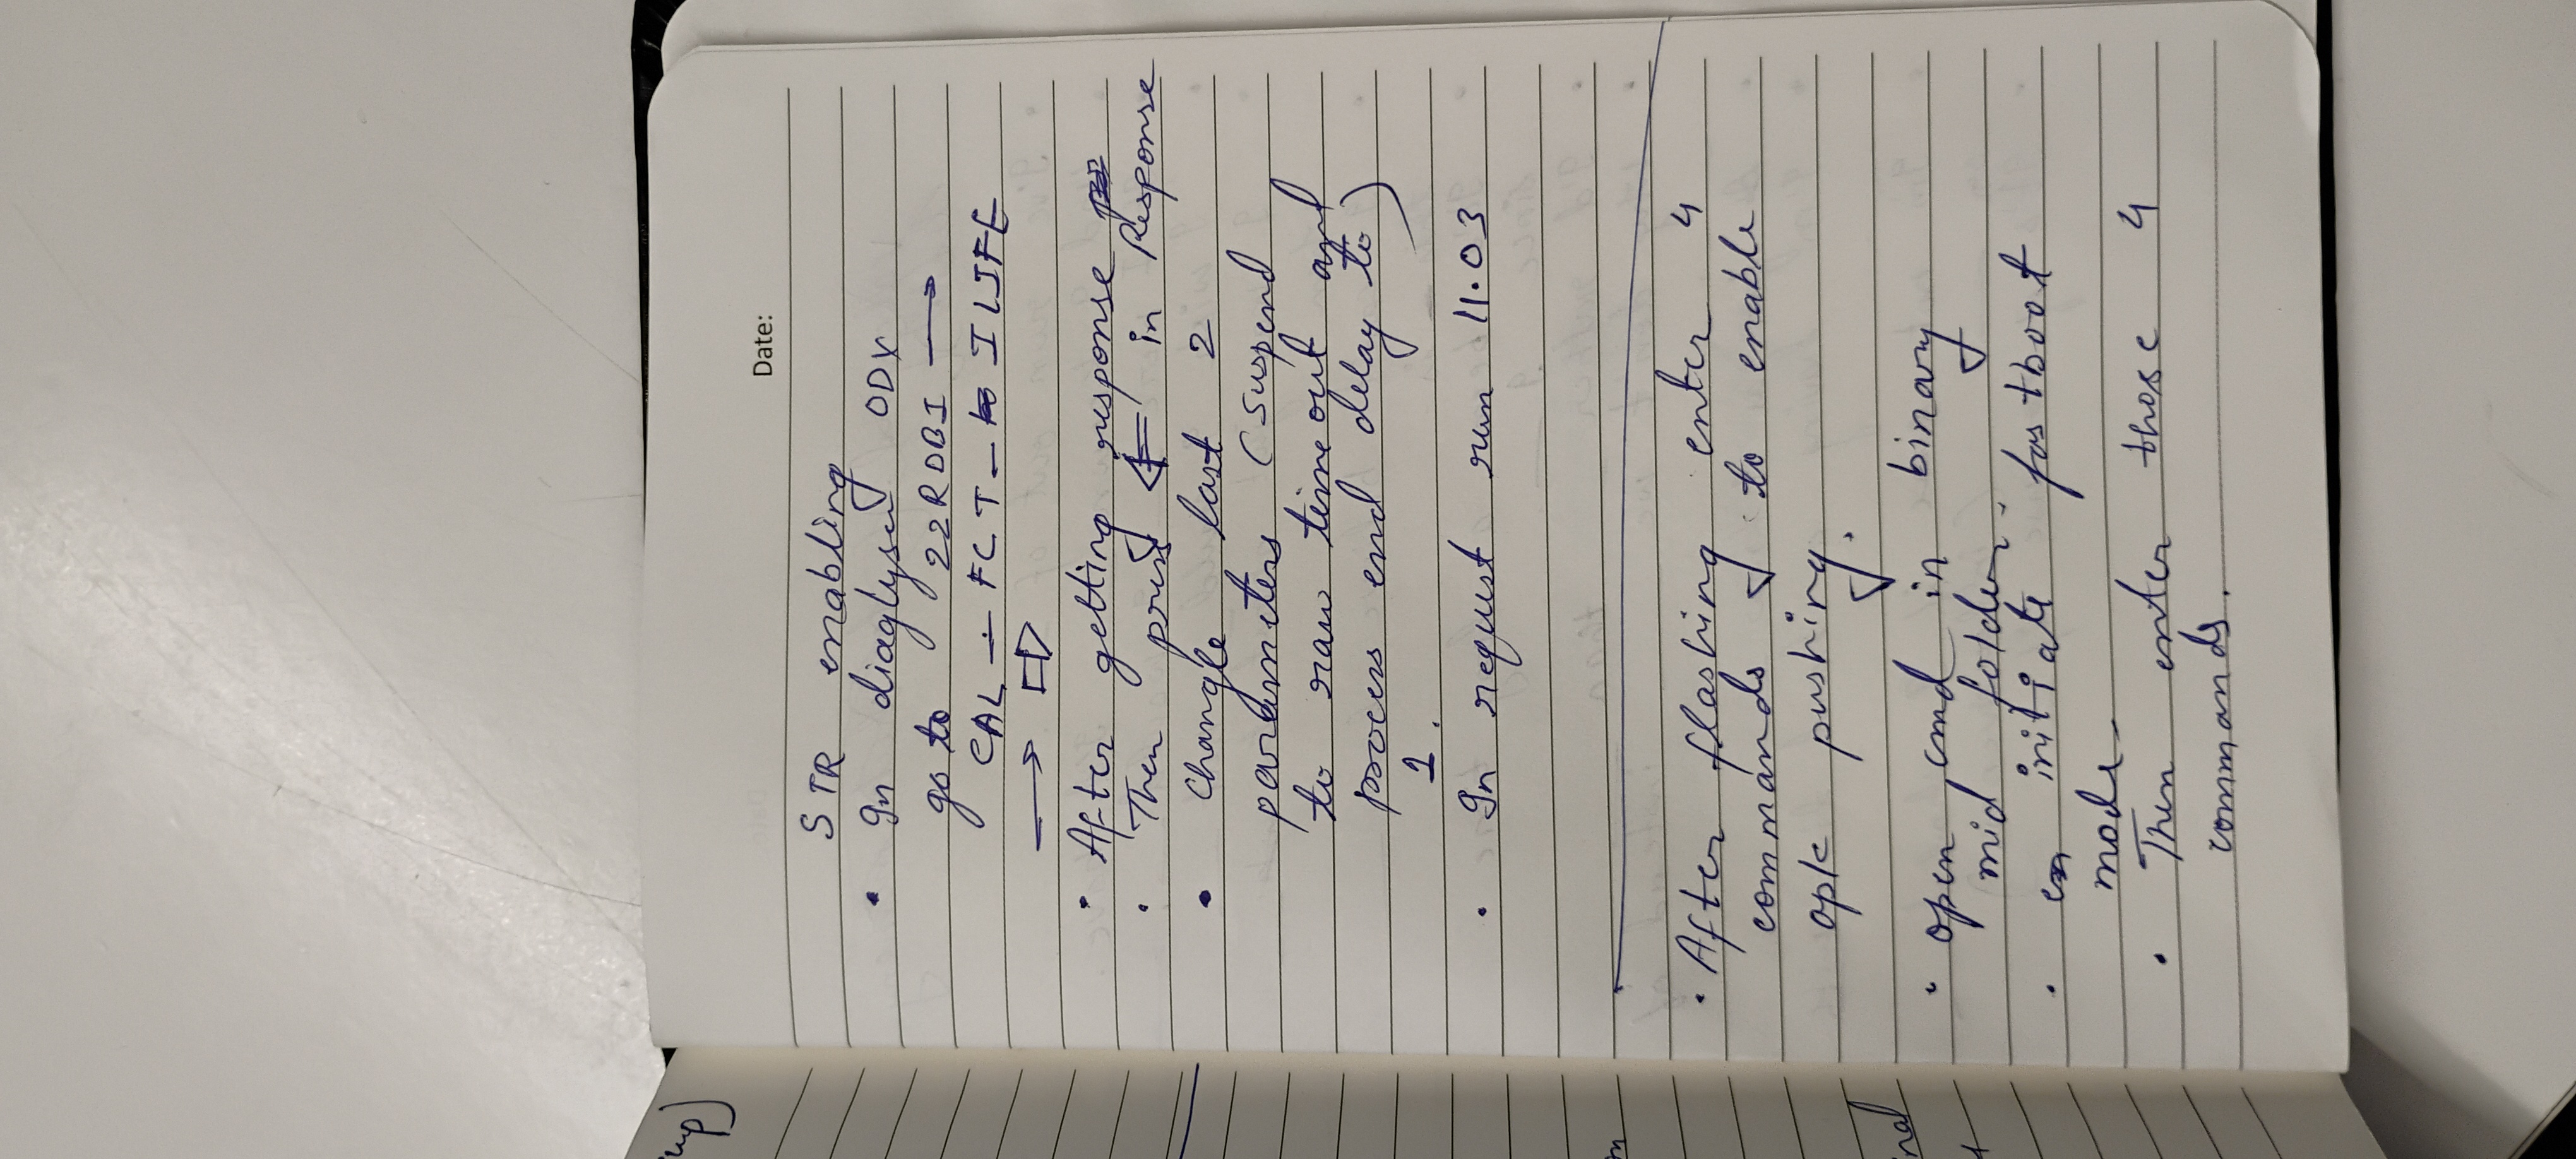 Date:
STR enabling
• In diaglyser ODX
go to 22RDBI →
CAL - FCT - ILIFE
→ ⇨
• After getting response
• Then press ⇐ in Response
• Change last 2
parameters (Suspend
to ram timeout and
process end delay to)
1.
• In request run 11.03
• After flashing enter 4
commands to enable
apk pushing.
• open cmd in binary
mid folder.
• initiate fastboot
mode.
• Then enter those 4
commands.
nal
up)